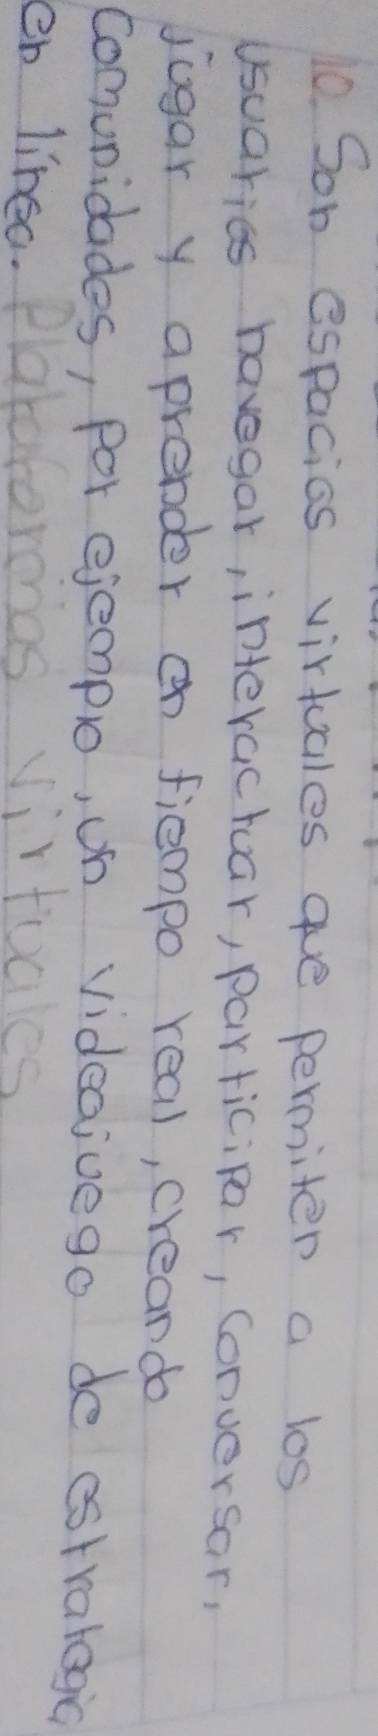 10. Son espacios virtuales que permiten a los
usuarios navegar, interactuar, participar, conversar,
jugar y aprender en tiempo real, creando
comunidades, por ejemplo, un videojuego de estrategia
en línea. Plataformas virtuales